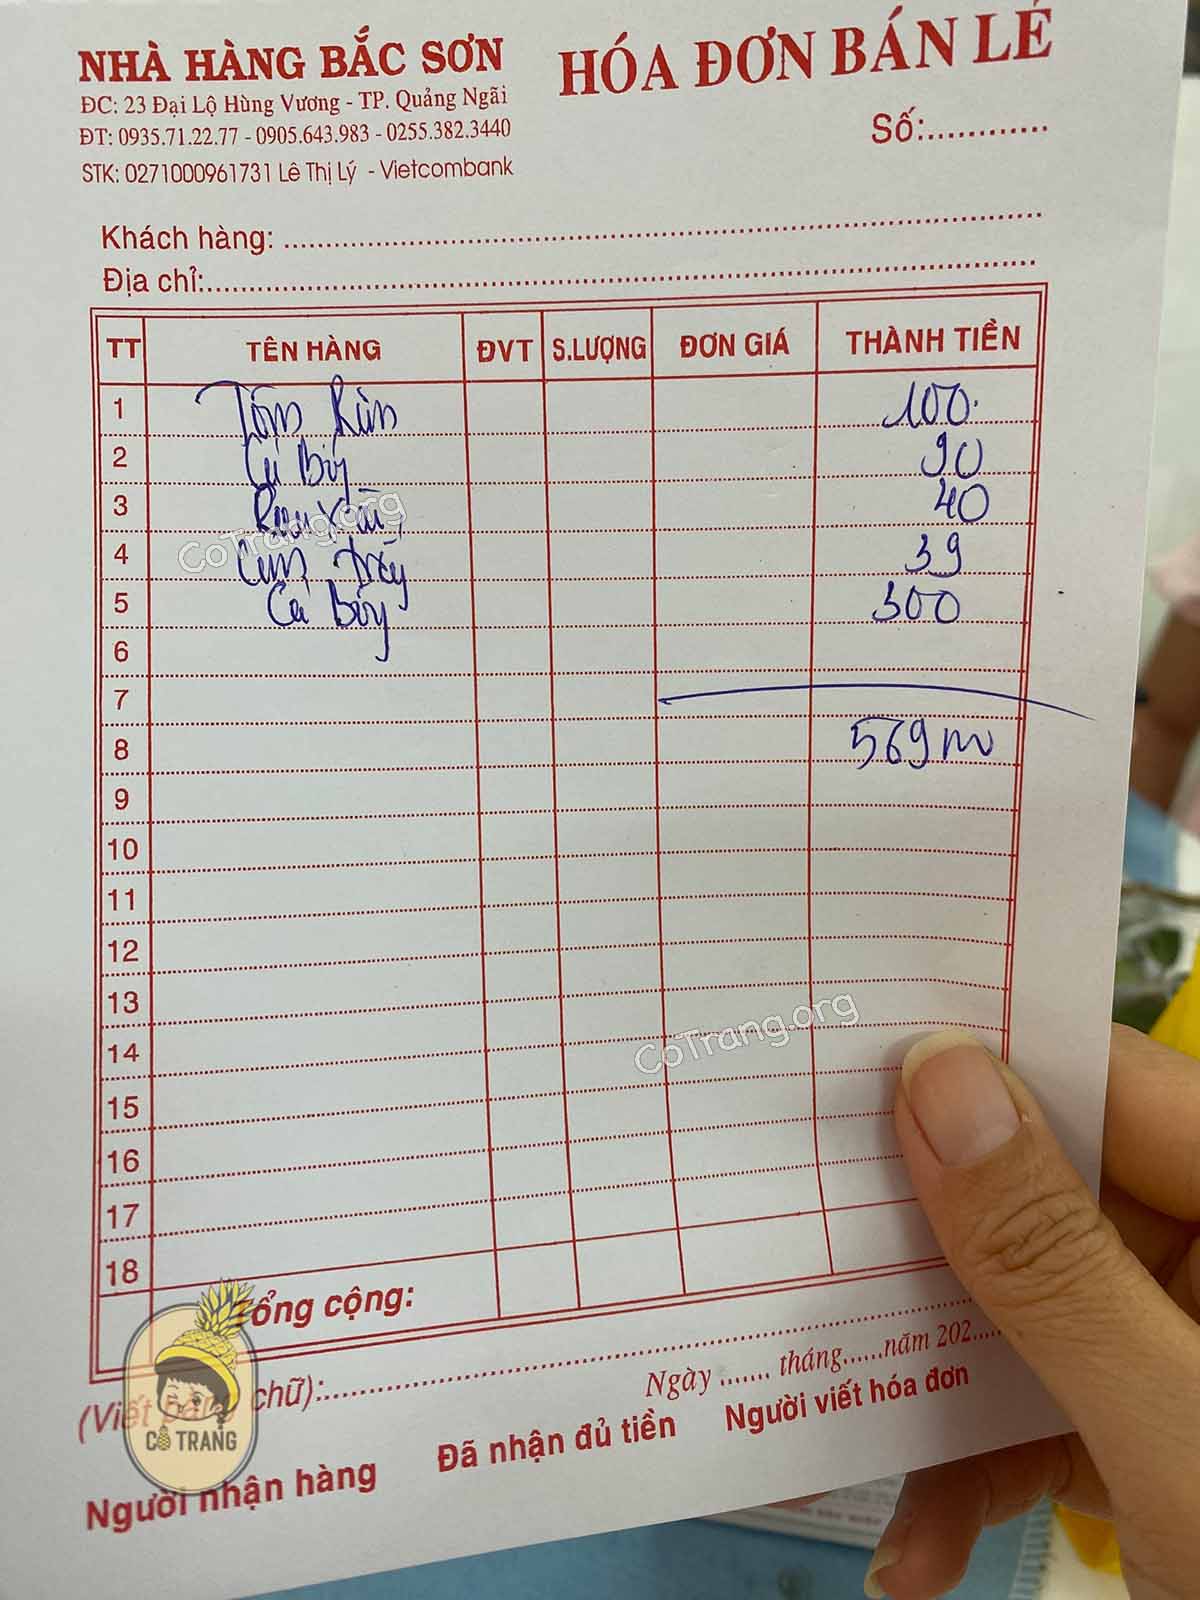 NHÀ HÀNG BẮC SƠN
ĐC: 23 Đại Lộ Hùng Vương - TP. Quảng Ngãi
ĐT: 0935.71.22.77 - 0905.643.983 - 0255.382.3440
STK: 0271000961731 Lê Thị Lý - Vietcombank
HÓA ĐƠN BÁN LẺ
Số:............
Khách hàng: ............
Địa chỉ:............
TT TÊN HÀNG ĐVT S.LƯỢNG ĐƠN GIÁ THÀNH TIỀN
1 Tôm 100.
2 90
3 40
4 39
5 Cá 300
6
7
8 569
9
10
11
12
13
14
15
16
17
18
Tổng cộng:
(Viết bằng chữ):............
Ngày ....... tháng......năm 202......
Người nhận hàng Đã nhận đủ tiền Người viết hóa đơn
CoTrang.org
CoTrang.org
CÔ TRANG